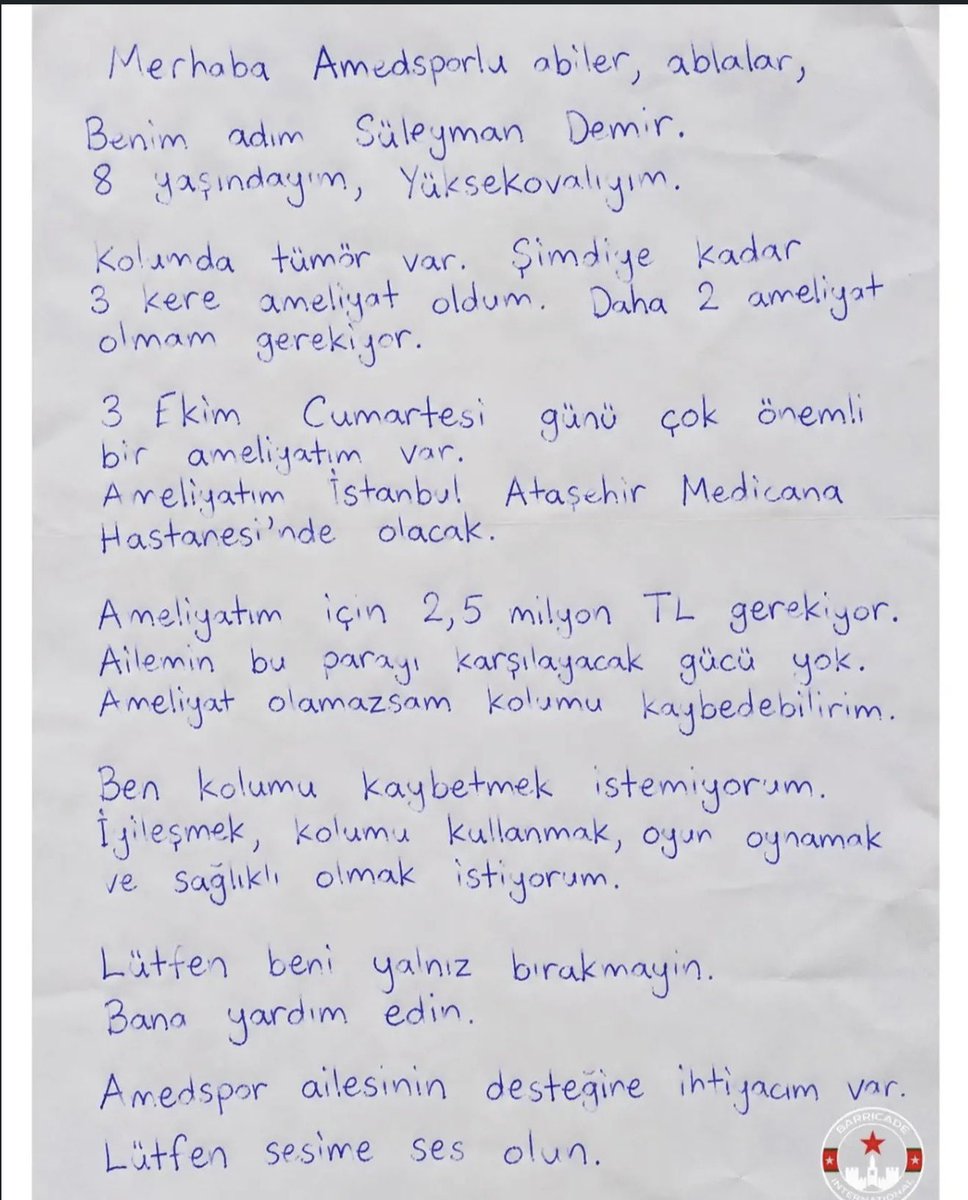 Merhaba Amedsporlu abiler, ablalar,
Benim adım Süleyman Demir.
8 yaşındayım, Yüksekovalıyım.
Kolumda tümör var. Şimdiye kadar
3 kere ameliyat oldum. Daha 2 ameliyat
olmam gerekiyor.
3 Ekim Cumartesi günü çok önemli
bir ameliyatım var.
Ameliyatım İstanbul Ataşehir Medicana
Hastanesi'nde olacak.
Ameliyatım için 2,5 milyon TL gerekiyor.
Ailemin bu parayı karşılayacak gücü yok.
Ameliyat olamazsam kolumu kaybedebilirim.
Ben kolumu kaybetmek istemiyorum.
İyileşmek, kolumu kullanmak, oyun oynamak
ve sağlıklı olmak istiyorum.
Lütfen beni yalnız bırakmayin.
Bana yardım edin.
Amedspor ailesinin desteğine ihtiyacım var.
Lütfen sesime ses olun.
BARRICADE
INTERNATIONAL